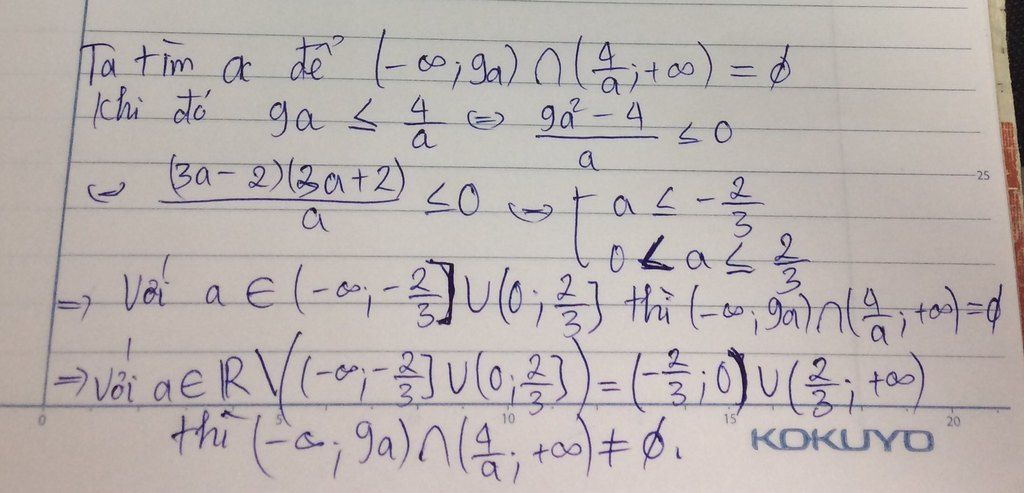 Ta tìm a để (-∞; 9a) ∩ (4/a; +∞) = ∅
Khi đó 9a ≤ 4/a ⇔ (9a² - 4)/a ≤ 0
⇔ (3a - 2)(3a + 2)/a ≤ 0 ⇔ [ a ≤ -2/3
0 < a ≤ 2/3
⇒ Với a ∈ (-∞; -2/3] ∪ (0; 2/3] thì (-∞; 9a) ∩ (4/a; +∞) = ∅
⇒ Với a ∈ ℝ \ ((-∞; -2/3] ∪ (0; 2/3]) = (-2/3; 0) ∪ (2/3; +∞)
thì (-∞; 9a) ∩ (4/a; +∞) ≠ ∅.
25
0 5 10 15 20
KOKUYO